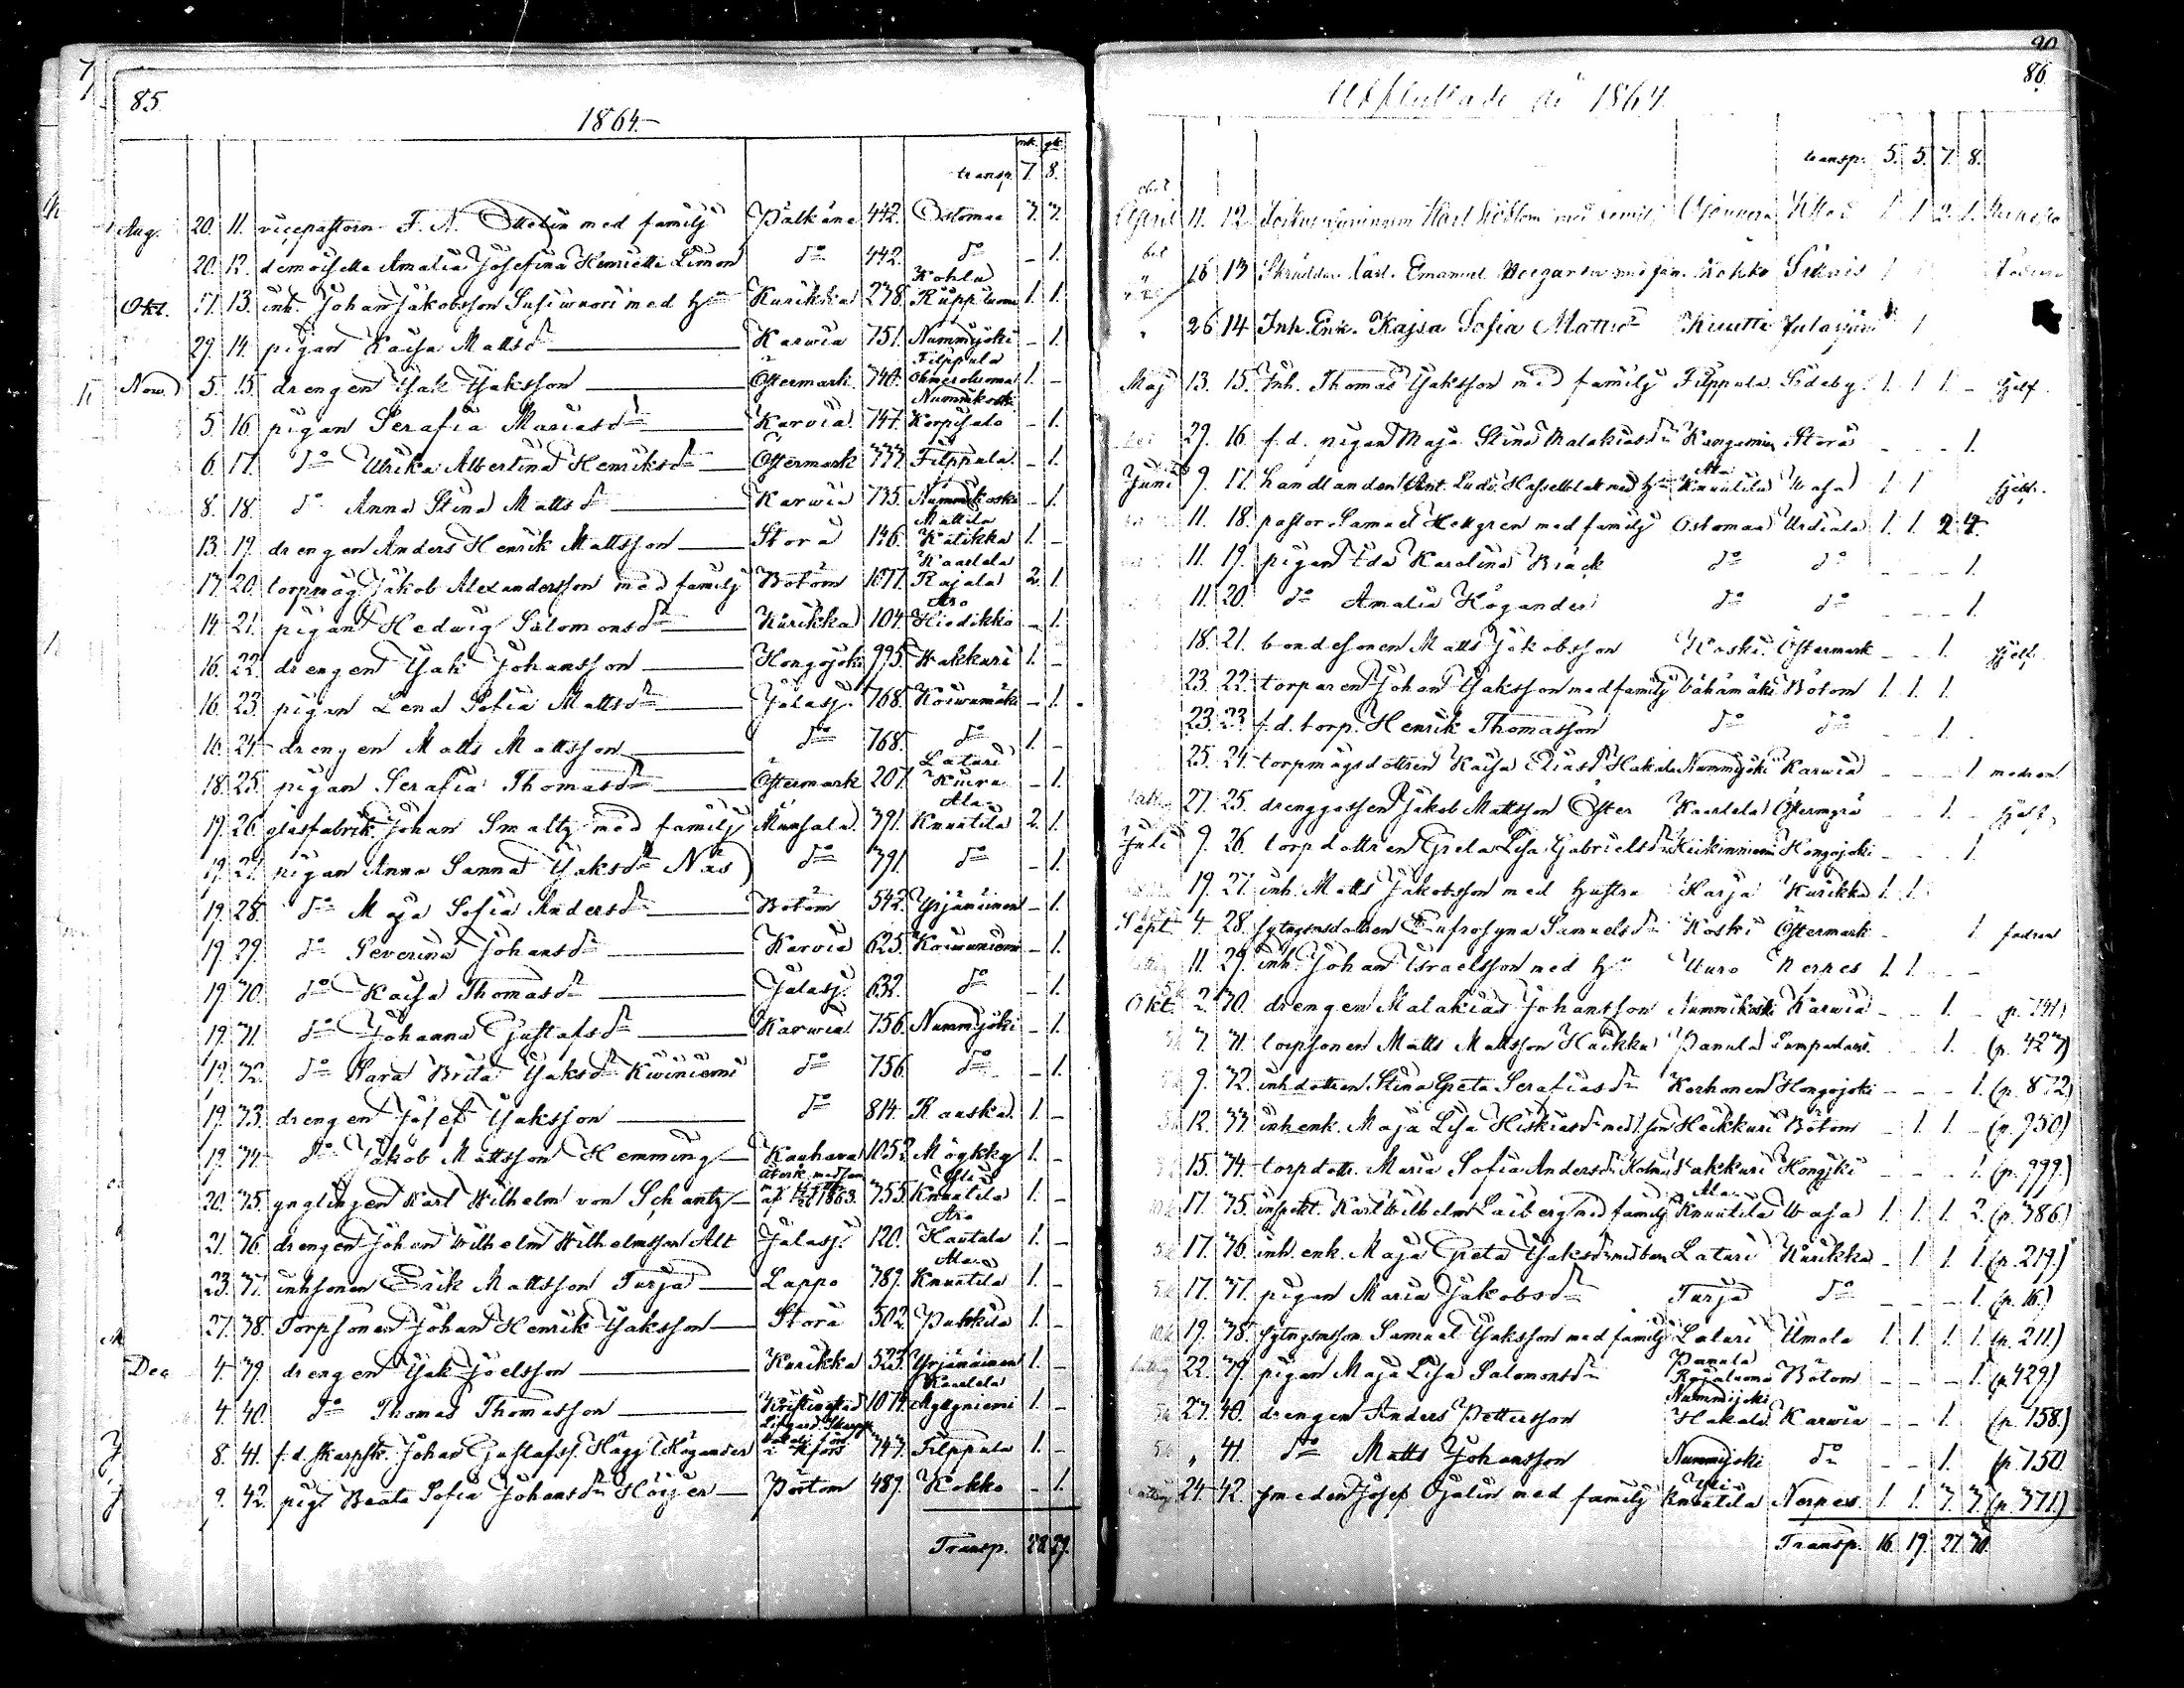 85.
1864.
mk. qk.
transp. 7. 8.
Aug. 20. 11. vicepastorn F. A. med familj Pälkäne 442. Östomaa 3. 3.
20. 12. demoiselle Amalia Josefina Henriette Limon do 442. do – 1.
Okt. 17. 13. inh. Johan Jakobsson med hu Kurikka 238. Kohla Rüppiluoma 1. 1.
29. 14. pigan Kaisa Mattsdr Karwia 751. Nummijoki – 1.
Nov. 5. 15. drengen Isak Isaksson Östermark 740. Filppula 1. –
5. 16. pigan Serafia Mariasdr Karvia 747. Nummikoski Korpisalo – 1.
6. 17. do Ulrika Albertina Henriksdr Östermark 777. Filppula – 1.
8. 18. do Anna Stina Mattsdr Karwia 735. Nummikoski – 1.
13. 19. drengen Anders Henrik Mattsson Storå 146. Mattila Katikka 1. –
17. 20. torpmåg Jakob Alexandersson med familj Bötom 1077. Kaarlela Rajala 2. 1.
14. 21. pigan Hedwig Salomonsdr Kurikka 104. Aro Hiodikko – 1.
16. 22. drengen Isak Johansson Hongojoki 995. Wakkuri 1. –
16. 23. pigan Lena Sofia Mattsdr Jalasj. 768. Koiwumäki – 1.
16. 24. drengen Matts Mattsson do 768. do 1. –
18. 25. pigan Serafia Thomasdr Östermark 207. Latari Kuera – 1.
19. 26. glasfabrik. Johan Smaltz med familj Munsala 391. Ala- Knuutila 2. 1.
19. 27. pigan Anna Sanna Isaksdr Näs do 391. do – 1.
19. 28. do Maja Sofia Andersdr Bötom 542. Yrjänäinen – 1.
19. 29. do Severina Johansdr Karvia 625. Koivuniemi – 1.
19. 30. do Kaisa Thomasdr Jalasj. 632. do – 1.
19. 31. do Johanna Gustafsdr Karwia 756. Nummijoki – 1.
19. 32. do Sara Brita Isaksdr Kiviniemi do 756. do – 1.
19. 33. drengen Josef Isaksson do 814. Kauska 1. –
19. 34. do Jakob Mattsson Hemming Kauhava 1052. Möykky 1. –
20. 35. ynglingen Karl Wilhelm von Schantz af 1863. 355. Yli Knuutila 1. –
21. 36. drengen Johan Wilhelm Wilhelmsson Alt Jalasj. 120. Aro Hautala 1. –
23. 37. inhsonen Erik Mattsson Turja Lappo 389. Ala- Knuutila 1. –
27. 38. Torpsonen Johan Henrik Isaksson Storå 502. Pukkila 1. –
Dec. 4. 39. drengen Isak Joelsson Kurikka 523. Yrjänäinen 1. –
4. 40. do Thomas Thomasson Kristinestad 1074. Kaarlela Mykyniemi 1. –
8. 41. f.d. skarpsk. Johan Gustafss. Hägg l. Högander 747. Filppula 1. –
9. 42. pig. Beata Sofia Johansdr Höijer Pörtom 489. Kokko – 1.
Transp. 28. 29.
90
86.
Utflyttade år 1864.
transp. 5. 5. 7. 8.
April 11. 12. Karl Sjöblom med familj 1. 1. 2. 1.
16. 13. Skräddar. Carl Emanuel med fam. Kokko 1
26. 14. Inh. Enk. Kajsa Sofia Mattsdr Kuutti Jalasjärvi 1
Maj 13. 15. Inh. Thomas Isaksson med familj Filppula Sideby 1. 1. 1. – sjelf.
29. 16. f.d. pigan Maja Stina Malakiasdr Kangasniemi Storå – – – 1.
Juni 9. 17. handlanden Ant. Ludv. Hasselblatt med hu Ala- Knuutila Wasa 1. 1 sjelf.
11. 18. pastor Samuel Hellgren med familj Östomaa Urdiala 1. 1. 2. 4.
11. 19. pigan Eda Karolina Bräck do do – – – 1.
11. 20. do Amalia Högander do do – – – 1.
18. 21. bondesonen Matts Jakobsson Koski Östermark – – 1. sjelf.
23. 22. torparen Johan Isaksson med familj Vähämäki Bötom 1. 1. 1.
23. 23. f.d. torp. Henrik Thomasson do do – – 1.
25. 24. torpmågsdottren Kaisa Eliasdr Hakala Nummijoki Karwia – – – 1. modren
27. 25. drenggossen Jakob Mattsson Öster Kaarlela Östermyra – – 1. – sjelf.
Juli 9. 26. torpdottren Greta Lisa Gabrielsdr Heikinniemi Hongojoki – – – 1.
19. 27. inh. Matts Jakobsson med hustru Harja Kurikka 1. 1.
Sept. 4. 28. sytngsmsdottren Eufrosyna Samuelsdr Koski Östermark – 1 fadren
11. 29. inh. Johan Israelsson med hu Uuro Nerpes 1. 1. – –
Okt. 2. 30. drengen Malakias Johansson Nummikoski Karwia – – 1. – (p. 741)
7. 31. torpsonen Matts Mattsson Huikku Panula – – 1. (p. 427)
9. 32. inhdottren Stina Greta Serafiasdr Korhonen Hongojoki – – – 1. (p. 872)
12. 33. inhenk. Maja Lisa Hiskiasdr med 1 son Heikkuri Bötom – 1. 1. – (p. 950)
15. 34. torpdottr. Maria Sofia Andersdr Kolmu Wakkuri Hongjki – – – 1. (p. 999.)
17. 35. inspekt. Karl Wilhelm Laiberg med familj Ala- Knuutila Wasa 1. 1. 1. 2. (p. 386.)
17. 36. inh. enk. Maja Greta Isaksdr med barn Latari Kurikka – 1. 1. 1. (p. 219.)
17. 37. pigan Maria Jakobsdr Turja do – – – 1. (p. 16.)
19. 38. sytngsmsson Samuel Isaksson med familj Latari Ilmola 1. 1. 1. 1. (p. 211.)
22. 39. pigan Maja Lisa Salomonsdr Panula Rajaluoma Bötom – – – 1. (p. 429)
27. 40. drengen Anders Pettersson Nummijoki Hakala Karwia – – 1. (p. 758.)
„ 41. do Matts Johansson Nummijoki do – – 1. (p. 750.
24. 42. smeden Josef Öjalin med familj Yli- Knuutila Nerpes 1. 1. 3. 3. (p. 371.)
Transp. 16. 19. 27. 30.